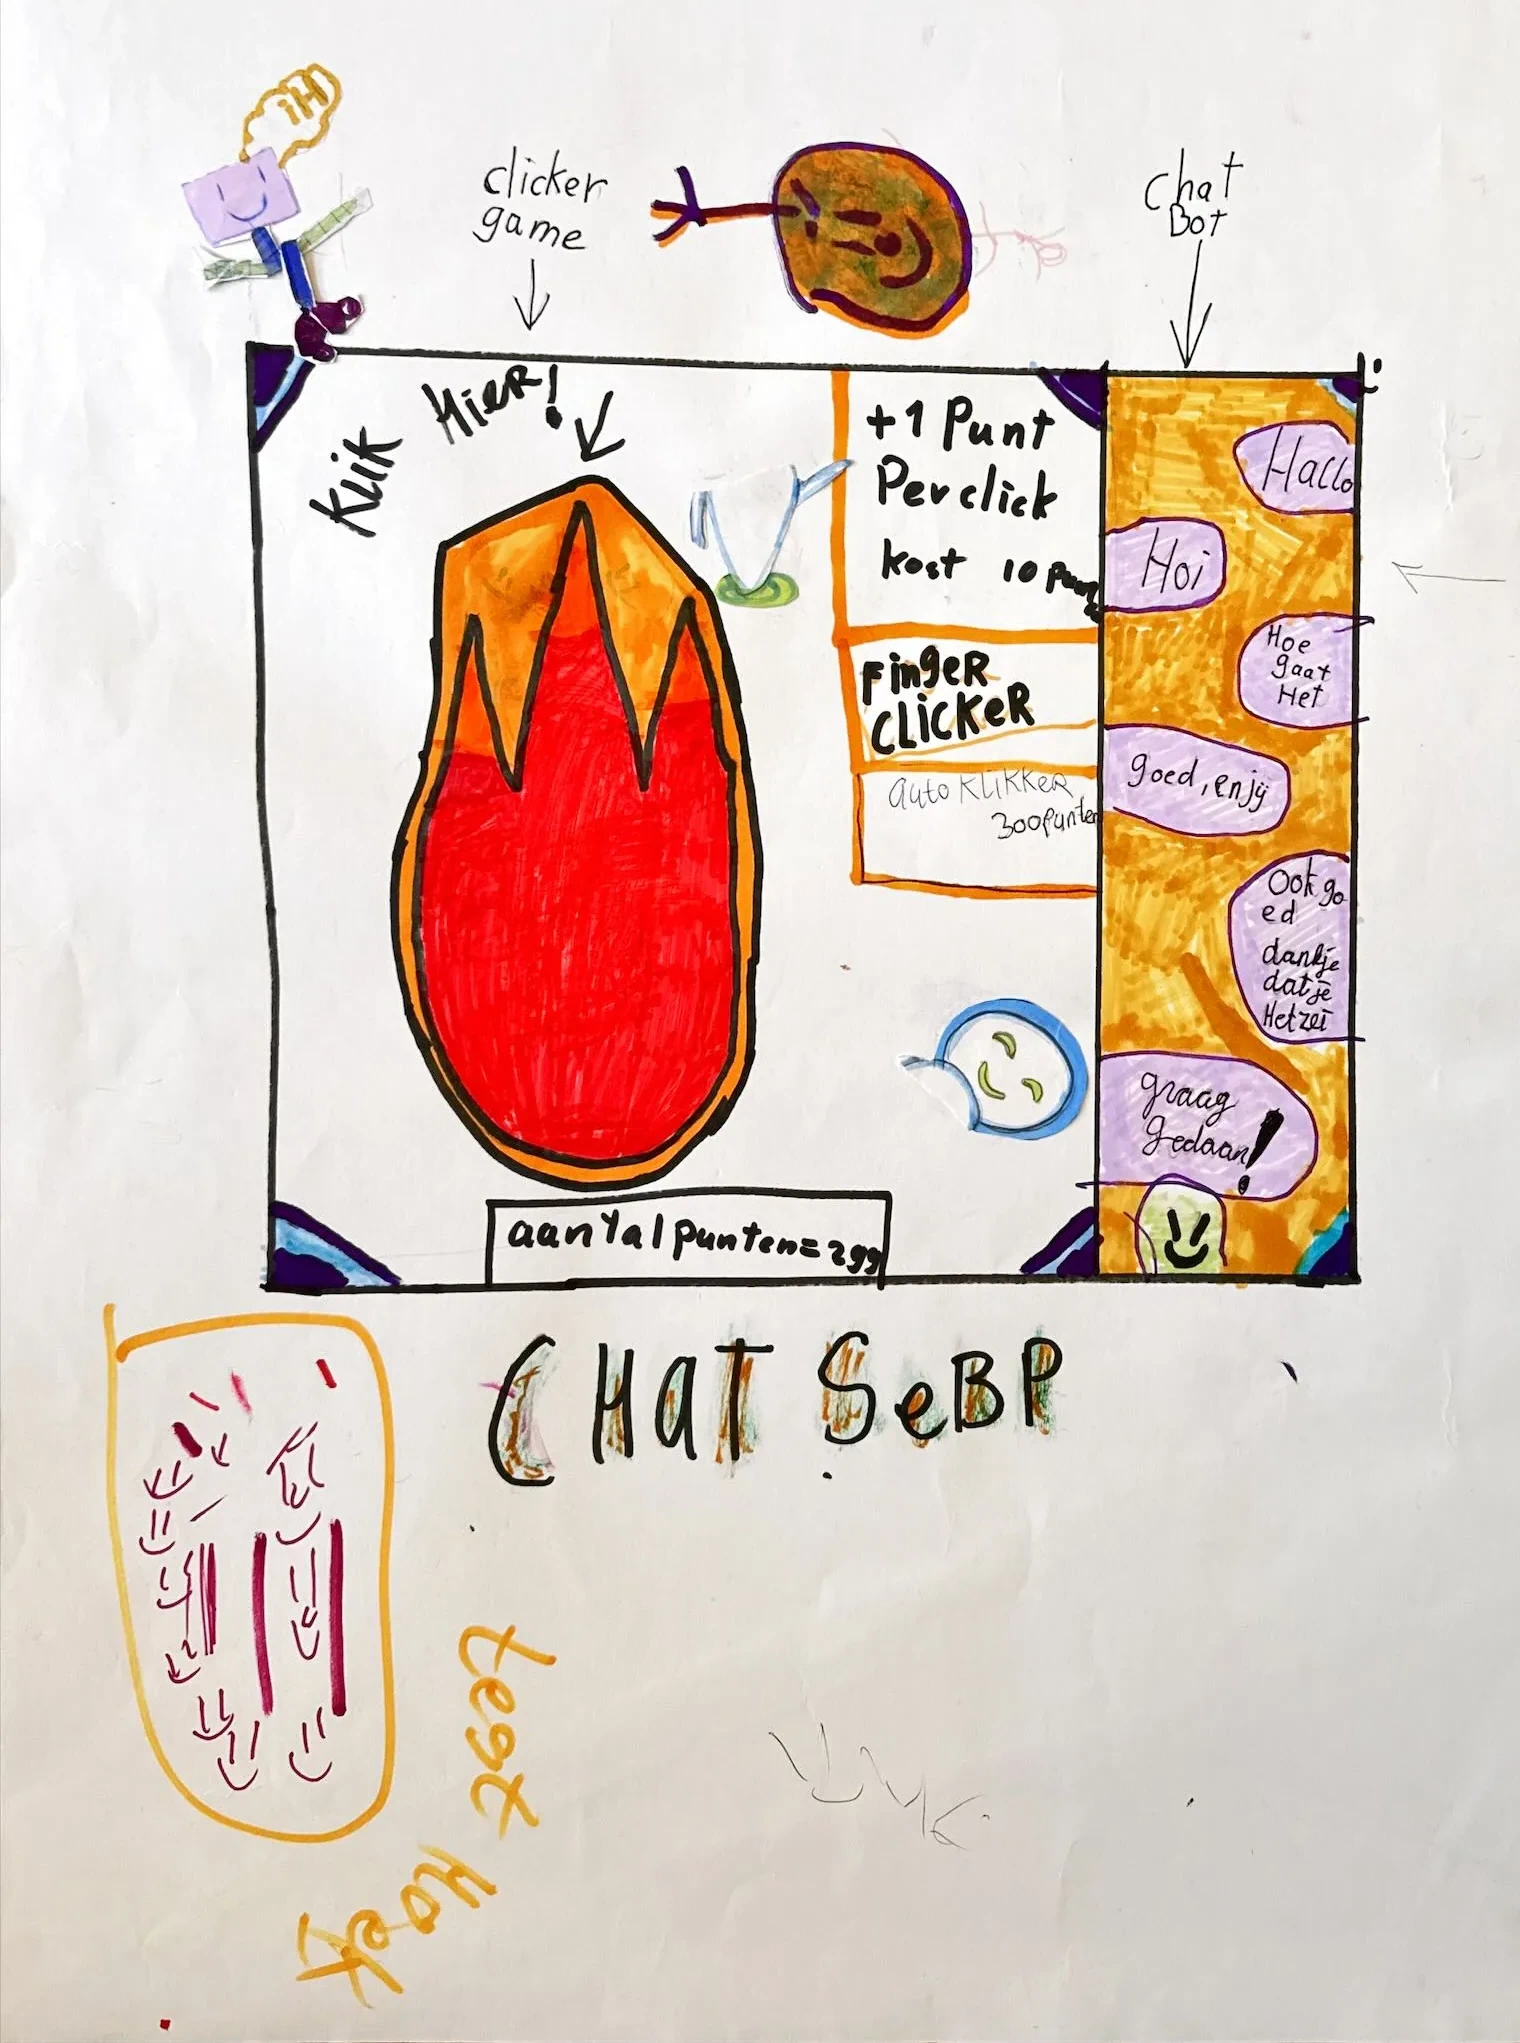 Hi
clicker
game
chat
Bot
Klik Hier!
+1 Punt
Per click
kost 10 punten
Finger
Clicker
auto Klikker
300punten
Hallo
Hoi
Hoe
gaat
Het
goed, en jij
Ook go
ed
dankje
dat je
Het zei
graag
gedaan!
aantal punten=299
CHaT SeBP
test
Hoek